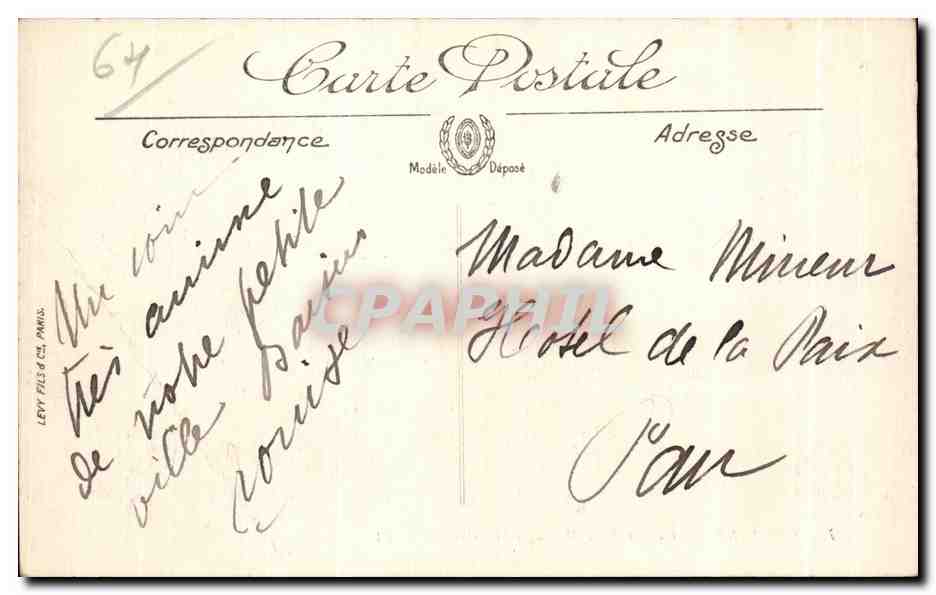 64
Carte Postale
Correspondance
Adresse
Modèle Déposé
LEVY FILS & Cie, PARIS.
Un coin
très animé
de notre petite
ville
Louise
Madame Mineur
Hotel de la Paix
Pau
CPAPHIL